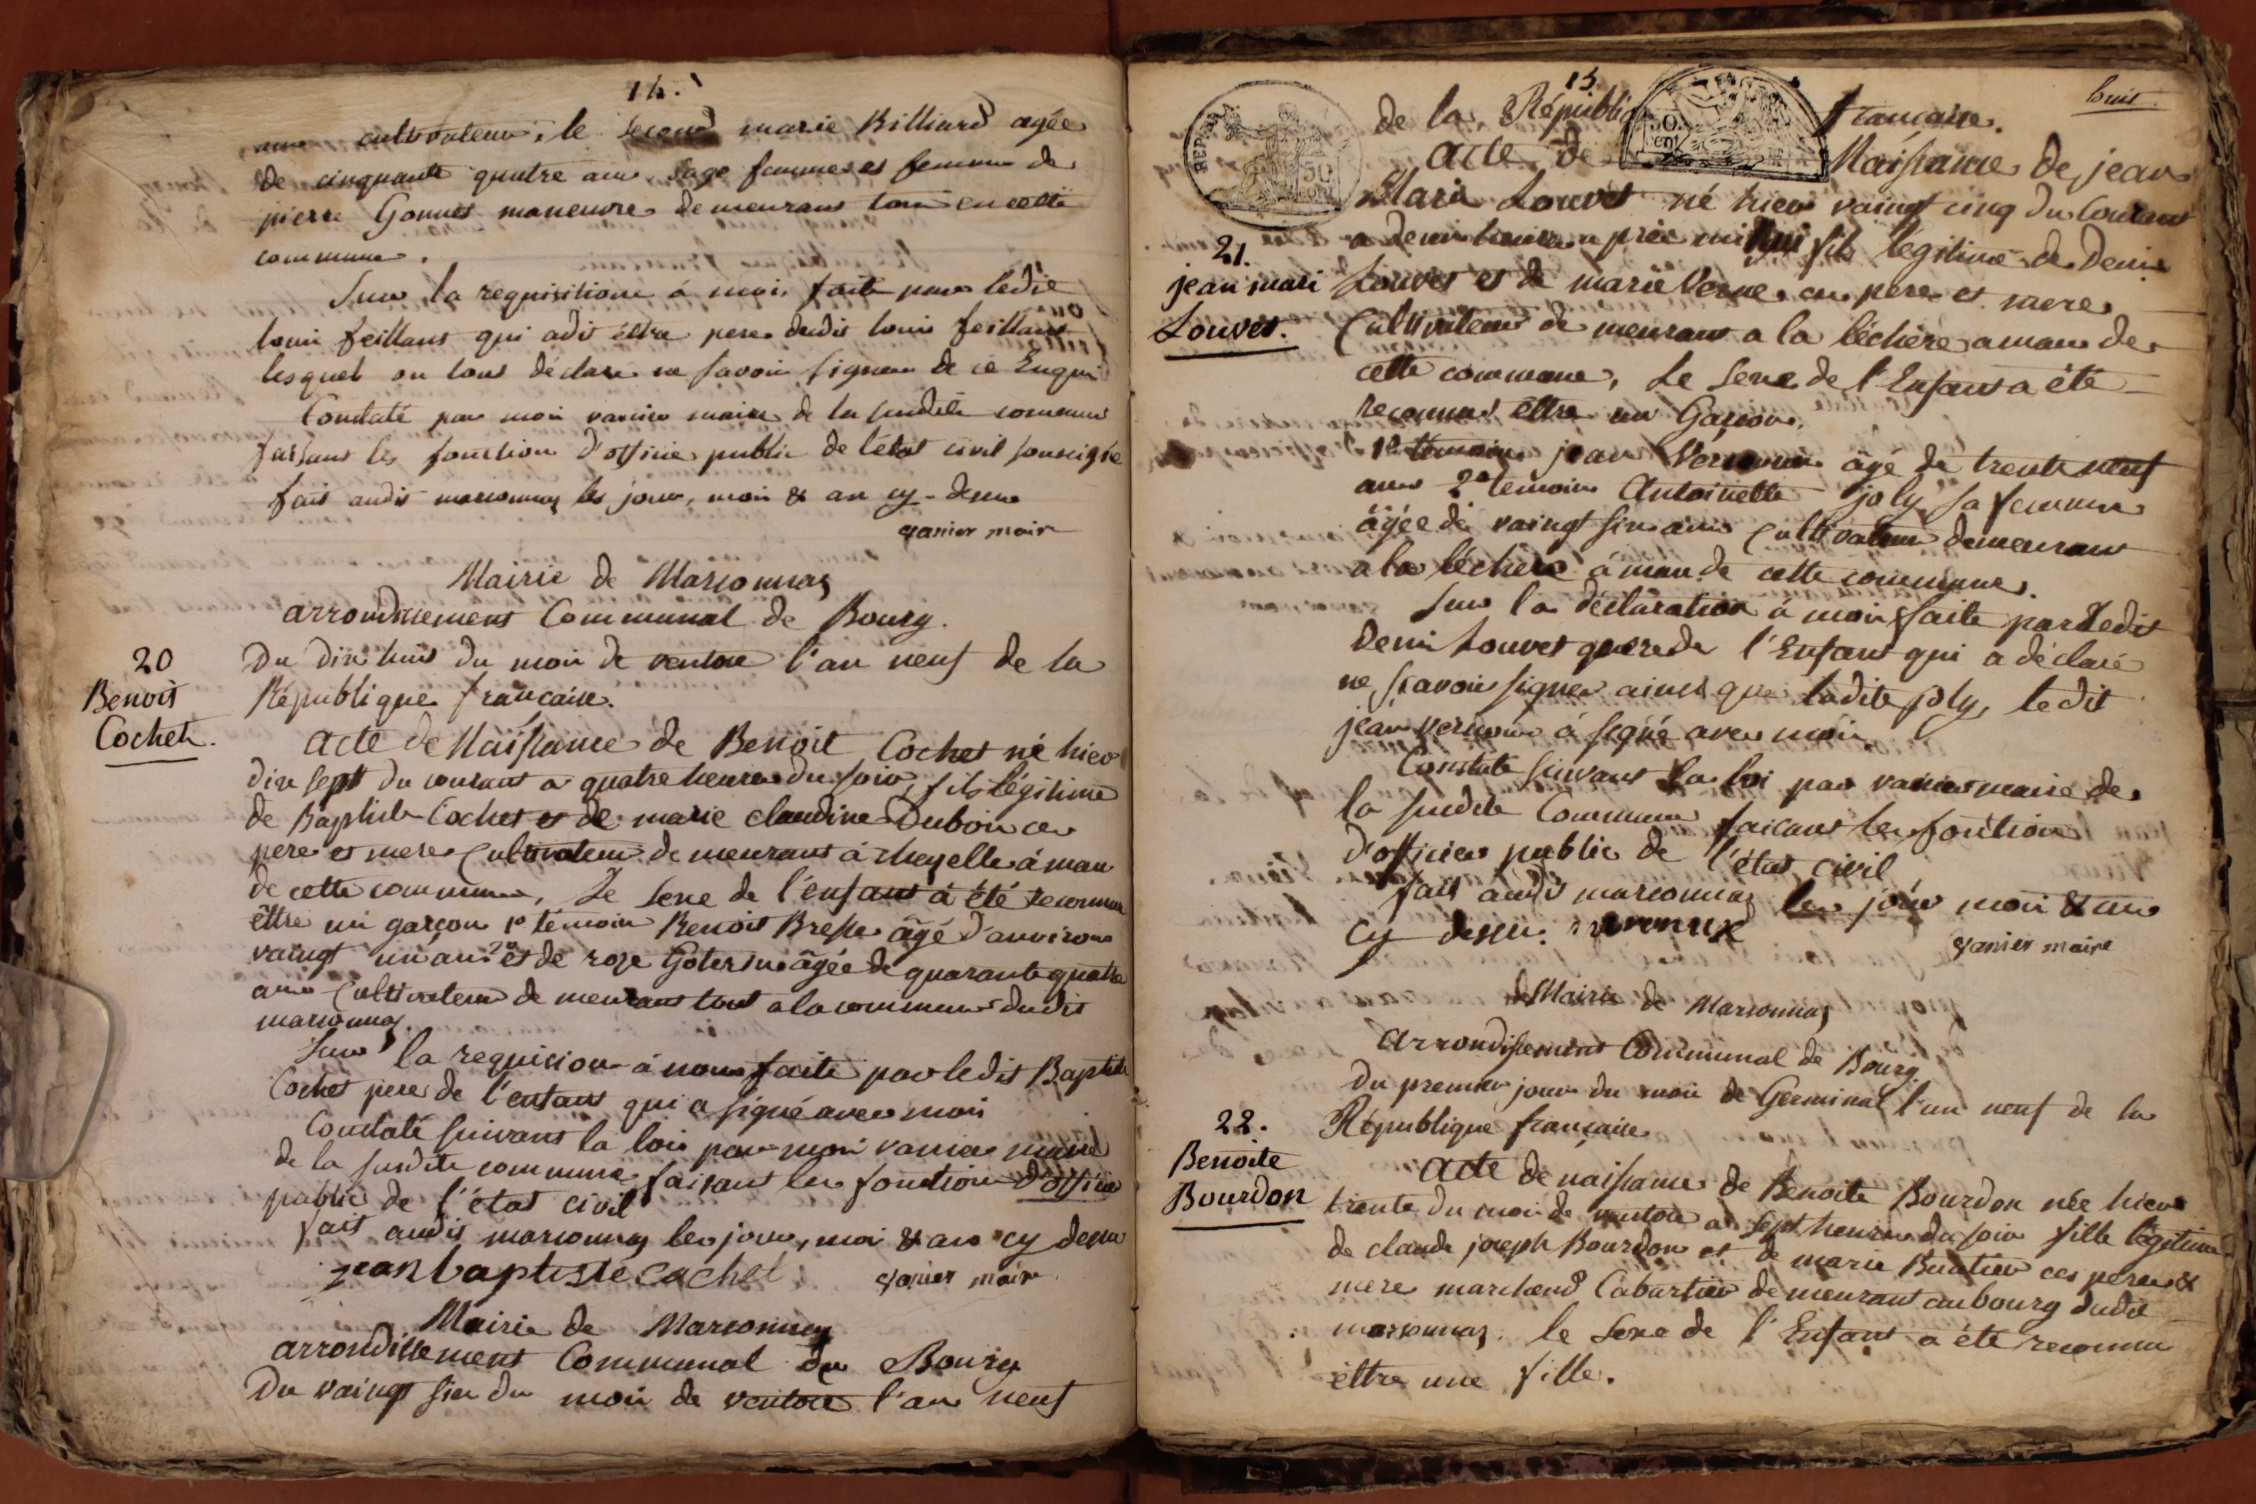 14.
ans cultivateur, le second marie Billiard agée
de cinquante quatre ans sage femme et femme de
pierre Gonnet maneuvre demeurans tous en cette
commune.
Sur la requisitione à moi faite par ledit
louis feillans qui a dit éttre pere dudit louis feillans
lesquel on tous déclare ne savoir signer de ce Enquis
Constaté par moi vanier maire de la susdite commune
faisant les fonction d'officie public de l'état civil sousigné
fait audit marsonnas les jour, mois & an cy-dessus
vanier mair
Mairie de Marsonnas
arrondissement Communal de Bourg.
20
Benoit
Cochet.
Du dix huit du mois de ventose l'an neuf de la
République francaise.
acte de Naissance de Benoit Cochet né hier
dix sept du courant a quatre heures du soir, fils légitime
de Baptiste Cochet et de marie claudine Dubois ces
pere et mere Cultivateur demeurant à cheyelle à man
de cette commune, Le sexe de l'enfant à été reconnu
êttre un garçon 1er témoin Benoit Bresse âgé d'anviron
vaingt un ans 2e et de roze âgée de quarante quatre
ans Cultivateur demeurans tout a la commune dudit
marsonnas.
Sur la requicion à nous faite par ledit Baptiste
Cochet pere de l'enfant qui a signé avec moi
Constaté suivant la loi par moi vanier maire
de la susdite commune faisant les fonction d'officie
public de l'état civil
fait audit marsonnas les jour, moi & an cy dessu
jean baptiste cochet vanier mair
Mairie de Marsonnas
arrondissement Communal de Bourg
Du vaingt six du mois de ventose l'an neuf
15.
huit
de la Républi francaise.
REP. FRA.
50
cent
50
cent
acte de Naissance de jean
21.
jean mari
Louvet.
Marie Louvet né hier vaingt cinq du Courant
a demi heure a près midi fils légitime de Denis
Louvet et de marie Verne ces pere et mere
Cultivateur demeurant a la léchere a man de
cette commune, Le sexe de l'Enfant a été
reconnut êttre un Garçon.
1er témoin jean Vernoux âgé de trente neuf
ans 2e témoin Antoinette joly sa femme
âgée de vaingt six ans Cultivateur demeurant
a la léchere à man de cette commune.
Sur la déclaration à moi faite par ledit
Denis Louvet pere de l'Enfant qui a déclaré
ne scavoir signer ainsi que ladite joly, ledit
jean vernoux à signé avec moi
Constate suivant la loi par vanier maire de
la susdite Commune faisant les fontion
d'officier public de l'état civil
fait audit marsonnas les jour moi & an
cy dessu. vernoux vanier maire
Mairie de Marsonnas
arrondissement Communal de Bourg.
Du premier jour du moi de Germinal l'an neuf de la
22.
Benoite
Bourdon
République francaise
acte de naissance de Benoite Bourdon née hier
trente du moi de ventose a sept heures du soir fille légitime
de claude joseph Bourdon et de marie Buatier ces pere &
mere marchand Cabartier demeurant au bourg dudit
marsonnas. le sexe de l'Enfant a été reconnu
êttre une fille.